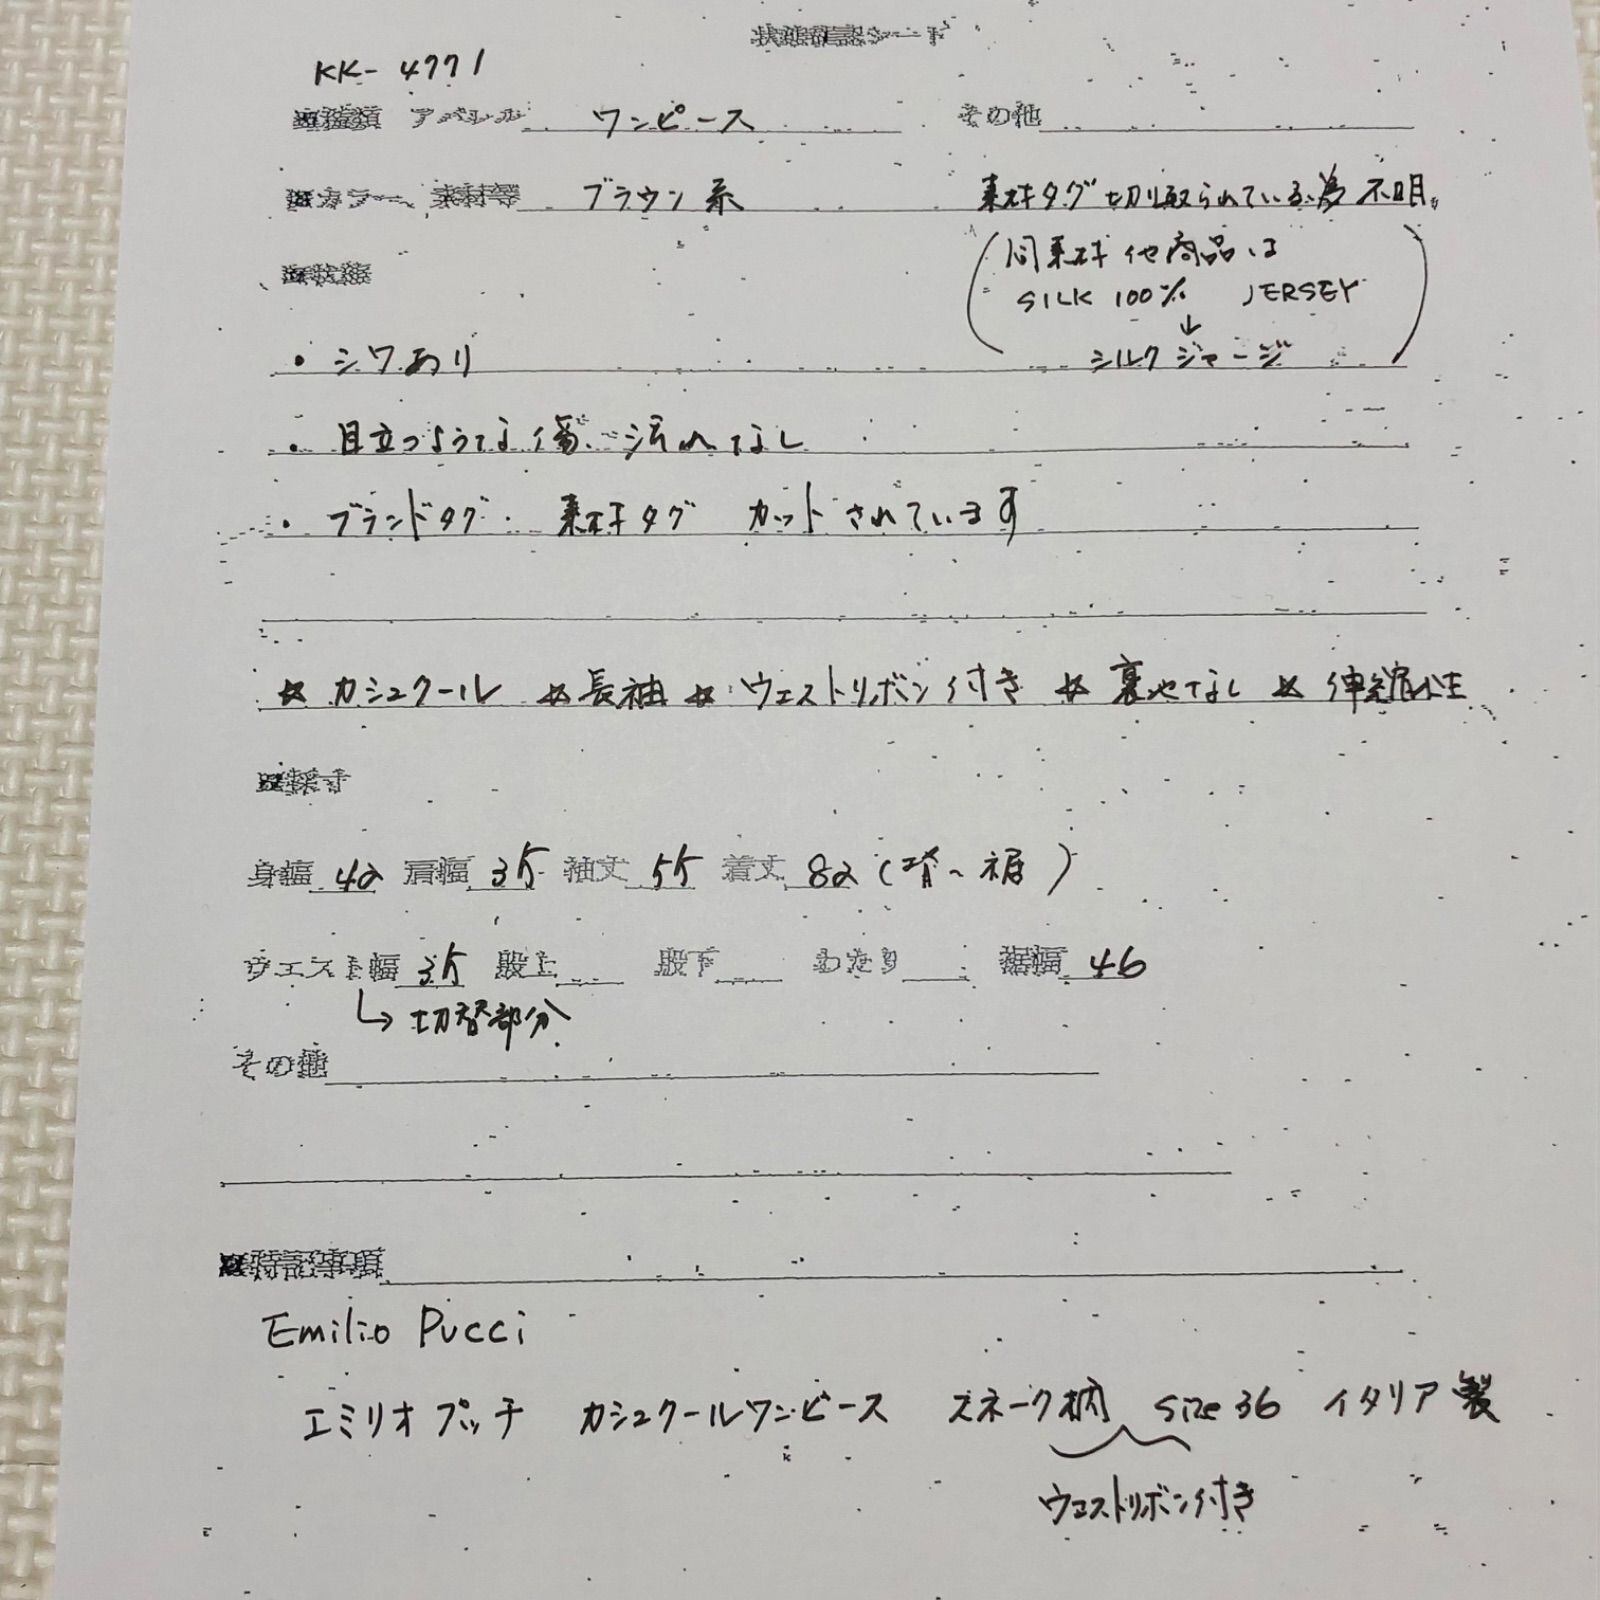 状態確認シート
KK-4771
■種類 アパレル ワンピース その他
■カラー、素材等 ブラウン系 素材タグ切り取られている為不明。
(同素材他商品は
SILK 100% JERSEY
↓
シルクジャージ)
■状態
・シワあり
・目立つような傷、汚れなし
・ブランドタグ・素材タグ カットされています
☆カシュクール ☆長袖 ☆ウエストリボン付き ☆裏地なし ☆伸縮性
■採寸
身幅 42 肩幅 35 袖丈 55 着丈 82(肩〜裾)
ウエスト幅 35 股上 股下 わたり 裾幅 46
↳切替部分
その他
■特記事項
Emilio Pucci
エミリオプッチ カシュクールワンピース スネーク柄 size36 イタリア製
ウエストリボン付き